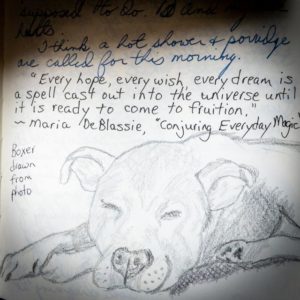 supposed to do. And
hells
I think a hot shower & porridge
are called for this morning.
"Every hope, every wish, every dream is
a spell cast out into the universe until
it is ready to come to fruition."
~ Maria DeBlassie, "Conjuring Everyday Magic"
Boxer
drawn
from
photo